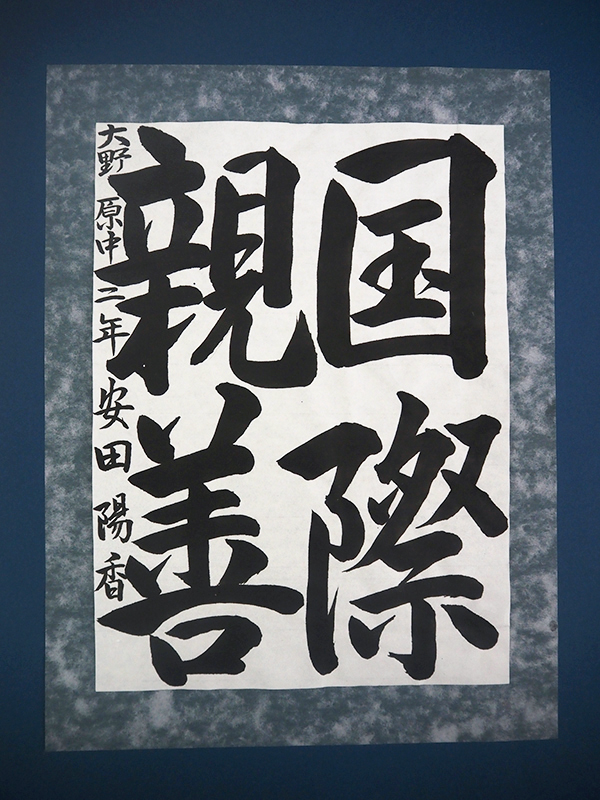 国際
親善
大野原中二年 安田陽香